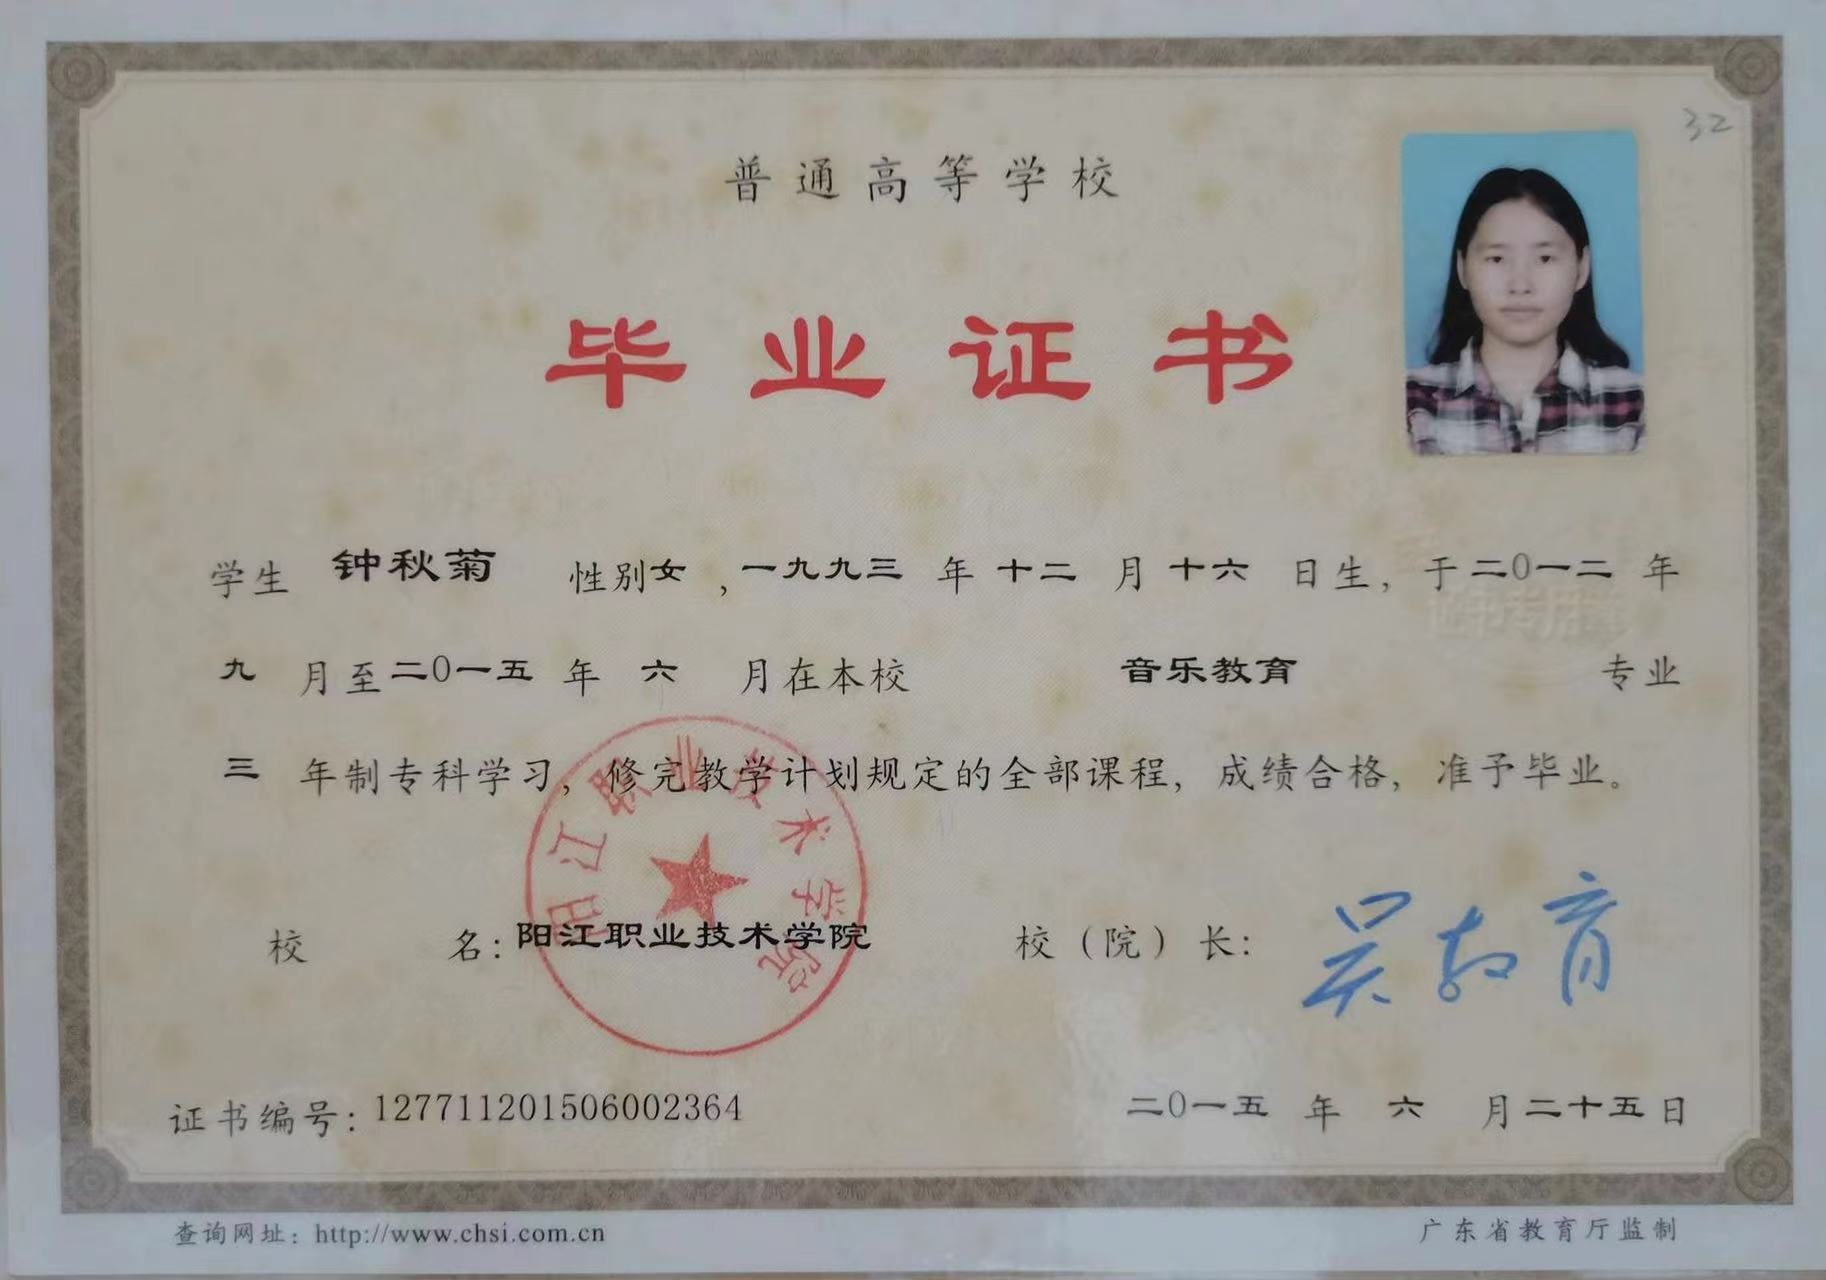 32
普通高等学校
毕业证书
学生 钟秋菊 性别女，一九九三 年 十二 月 十六 日生，于二〇一二 年
九 月至二〇一五 年 六 月在本校 音乐教育 专业
三 年制专科学习，修完教学计划规定的全部课程，成绩合格，准予毕业。
阳江职业技术学院
校 名：阳江职业技术学院 校（院）长：吴教育
证书编号：127711201506002364 二〇一五 年 六 月二十五日
查询网址：http://www.chsi.com.cn 广东省教育厅监制